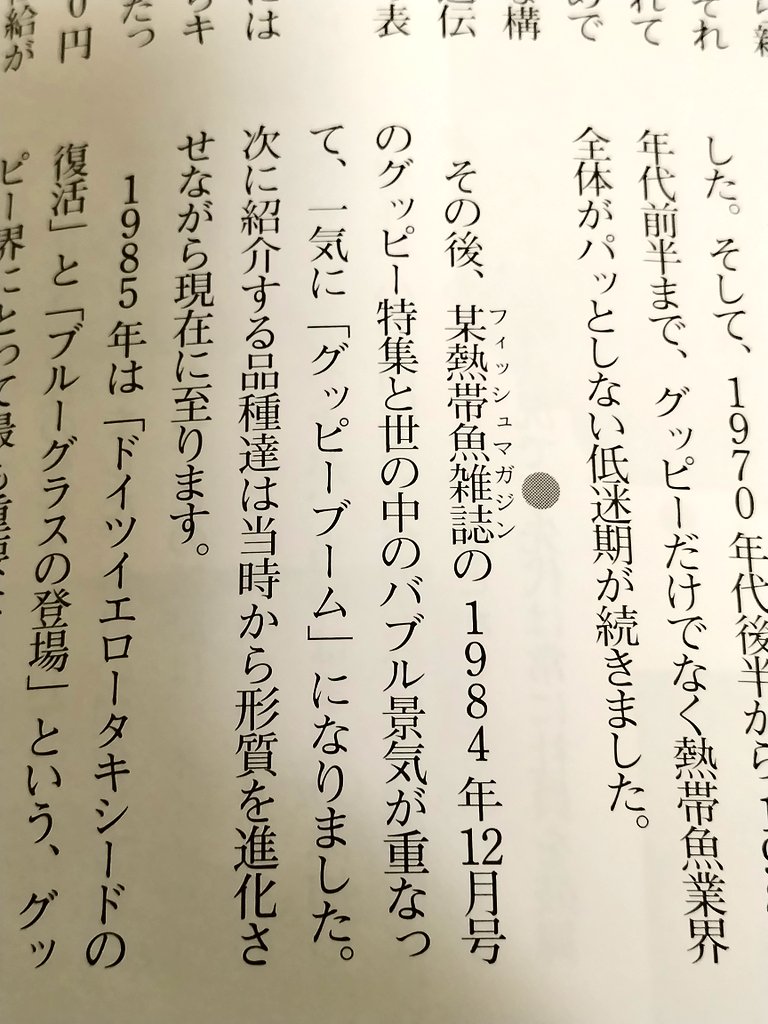 した。そして、1970年代後半から
年代前半まで、グッピーだけでなく熱帯魚業界
全体がパッとしない低迷期が続きました。
●
その後、某熱帯魚雑誌の1984年12月号
フィッシュマガジン
のグッピー特集と世の中のバブル景気が重なっ
て、一気に「グッピーブーム」になりました。
次に紹介する品種達は当時から形質を進化さ
せながら現在に至ります。
1985年は「ドイツイエロータキシードの
復活」と「ブルーグラスの登場」という、グッ
ピー界にとって最も